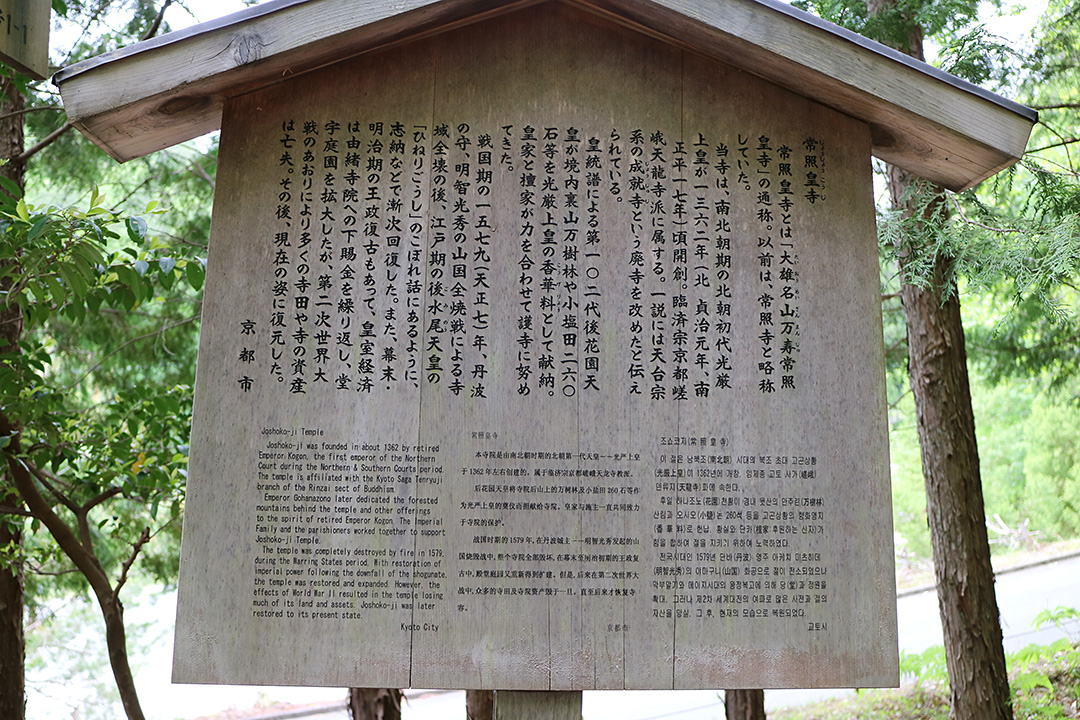 常照皇寺
常照皇寺とは「大雄名山万寿常照
皇寺」の通称。以前は、常照寺と略称
していた。
当寺は、南北朝期の北朝初代光厳
上皇が一三六二年（北 貞治元年、南
正平一七年）頃開創。臨済宗京都嵯
峨天龍寺派に属する。一説には天台宗
系の成就寺という廃寺を改めたと伝え
られている。
皇統譜による第一〇二代後花園天
皇が境内裏山万樹林や小塩田二六〇
石等を光厳上皇の香華料として献納。
皇家と檀家が力を合わせて護寺に努め
てきた。
戦国期の一五七九（天正七）年、丹波
の守、明智光秀の山国全焼戦による寺
域全壊の後、江戸期の後水尾天皇の
「ひねりごうし」のこぼれ話にあるように、
志納などで漸次回復した。また、幕末・
明治期の王政復古もあって、皇室経済
は由緒寺院への下賜金を繰り返し、堂
宇庭園を拡大したが、第二次世界大
戦のあおりにより多くの寺田や寺の資産
は亡失。その後、現在の姿に復元した。
京都市
Joshoko-ji Temple
Joshoko-ji was founded in about 1362 by retired
Emperor Kogon, the first emperor of the Northern
Court during the Northern & Southern Courts period.
The temple is affiliated with the Kyoto Saga Tenryuji
branch of the Rinzai sect of Buddhism.
Emperor Gohanazono later dedicated the forested
mountains behind the temple and other offerings
to the spirit of retired Emperor Kogon. The Imperial
Family and the parishioners worked together to support
Joshoko-ji Temple.
The temple was completely destroyed by fire in 1579,
during the Warring States period. With restoration of
imperial power following the downfall of the shogunate,
the temple was restored and expanded. However, the
effects of World War II resulted in the temple losing
much of its land and assets. Joshoko-ji was later
restored to its present state.
Kyoto City
常照皇寺
本寺院是由南北朝时期的北朝第一代天皇——光严上皇
于1362年左右创建的，属于临济宗京都嵯峨天龙寺教派。
后花园天皇将寺院后山上的万树林及小盐田260石等作
为光严上皇的奠仪而捐献给寺院。皇家与施主一直共同致力
于寺院的保护。
战国时期的1579年，在丹波城主——明智光秀发起的山
国烧毁战中，整个寺院全部毁坏。在幕末至明治初期的王政复
古中，殿堂庭园又重新得到扩建。但是，后来在第二次世界大
战中，众多的寺田及寺院资产毁于一旦。直至后来才恢复寺
容。
京都市
조쇼코지(常照皇寺)
이 절은 남북조(南北朝) 시대의 북조 초대 고곤상황
(光厳上皇)이 1362년에 개창. 임제종 교토 사가(嵯峨)
덴류지(天龍寺)파에 속한다.
후일 하나조노(花園)천황이 경내 뒷산의 만주린(万樹林)
산림과 오시오(小塩)논 260석 등을 고곤상황의 정화영지
(香華料)로 헌납. 황실와 단카(檀家:후원하는 신자)가
힘을 합하여 절을 지키기 위하여 노력하였다.
전국시대인 1579년 단바(丹波) 영주 아케치 미츠히데
(明智光秀)의 야마구니(山国) 화공으로 절이 전소되었으나
막부말기와 메이지시대의 왕정복고에 의해 당(堂)과 정원을
확대. 그러나 제2차 세계대전의 여파로 많은 사전과 절의
자산을 망실. 그 후, 현재의 모습으로 복원되었다.
교토시